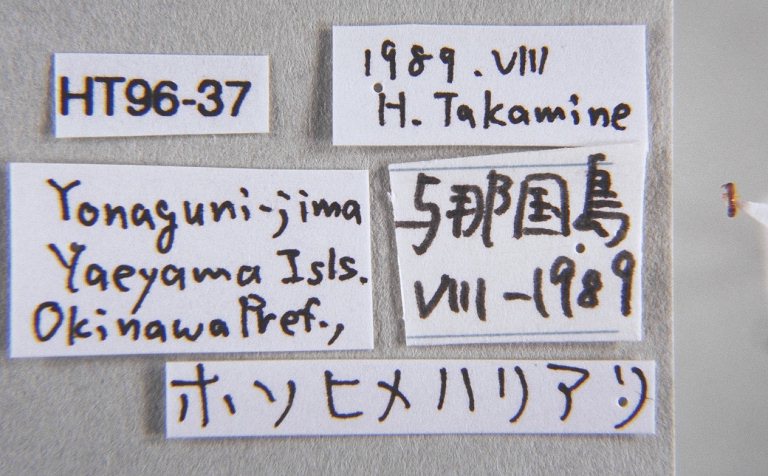 HT96-37
1989. VIII
H. Takamine
Yonaguni-jima
Yaeyama Isls.
Okinawa Pref.,
与那国島
VIII-1989
ホソヒメハリアリ